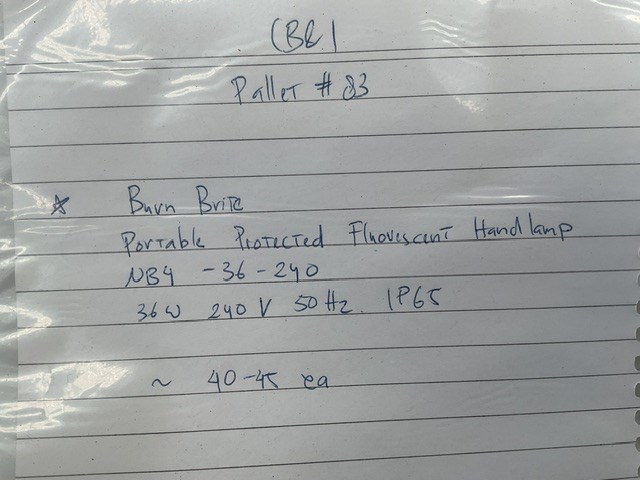 (B&)
Pallet # 83
☆ Burn Brite
Portable Protected Fluorescent Handlamp
NB4 -36-240
36W 240V 50Hz. IP65
~ 40-45 ea